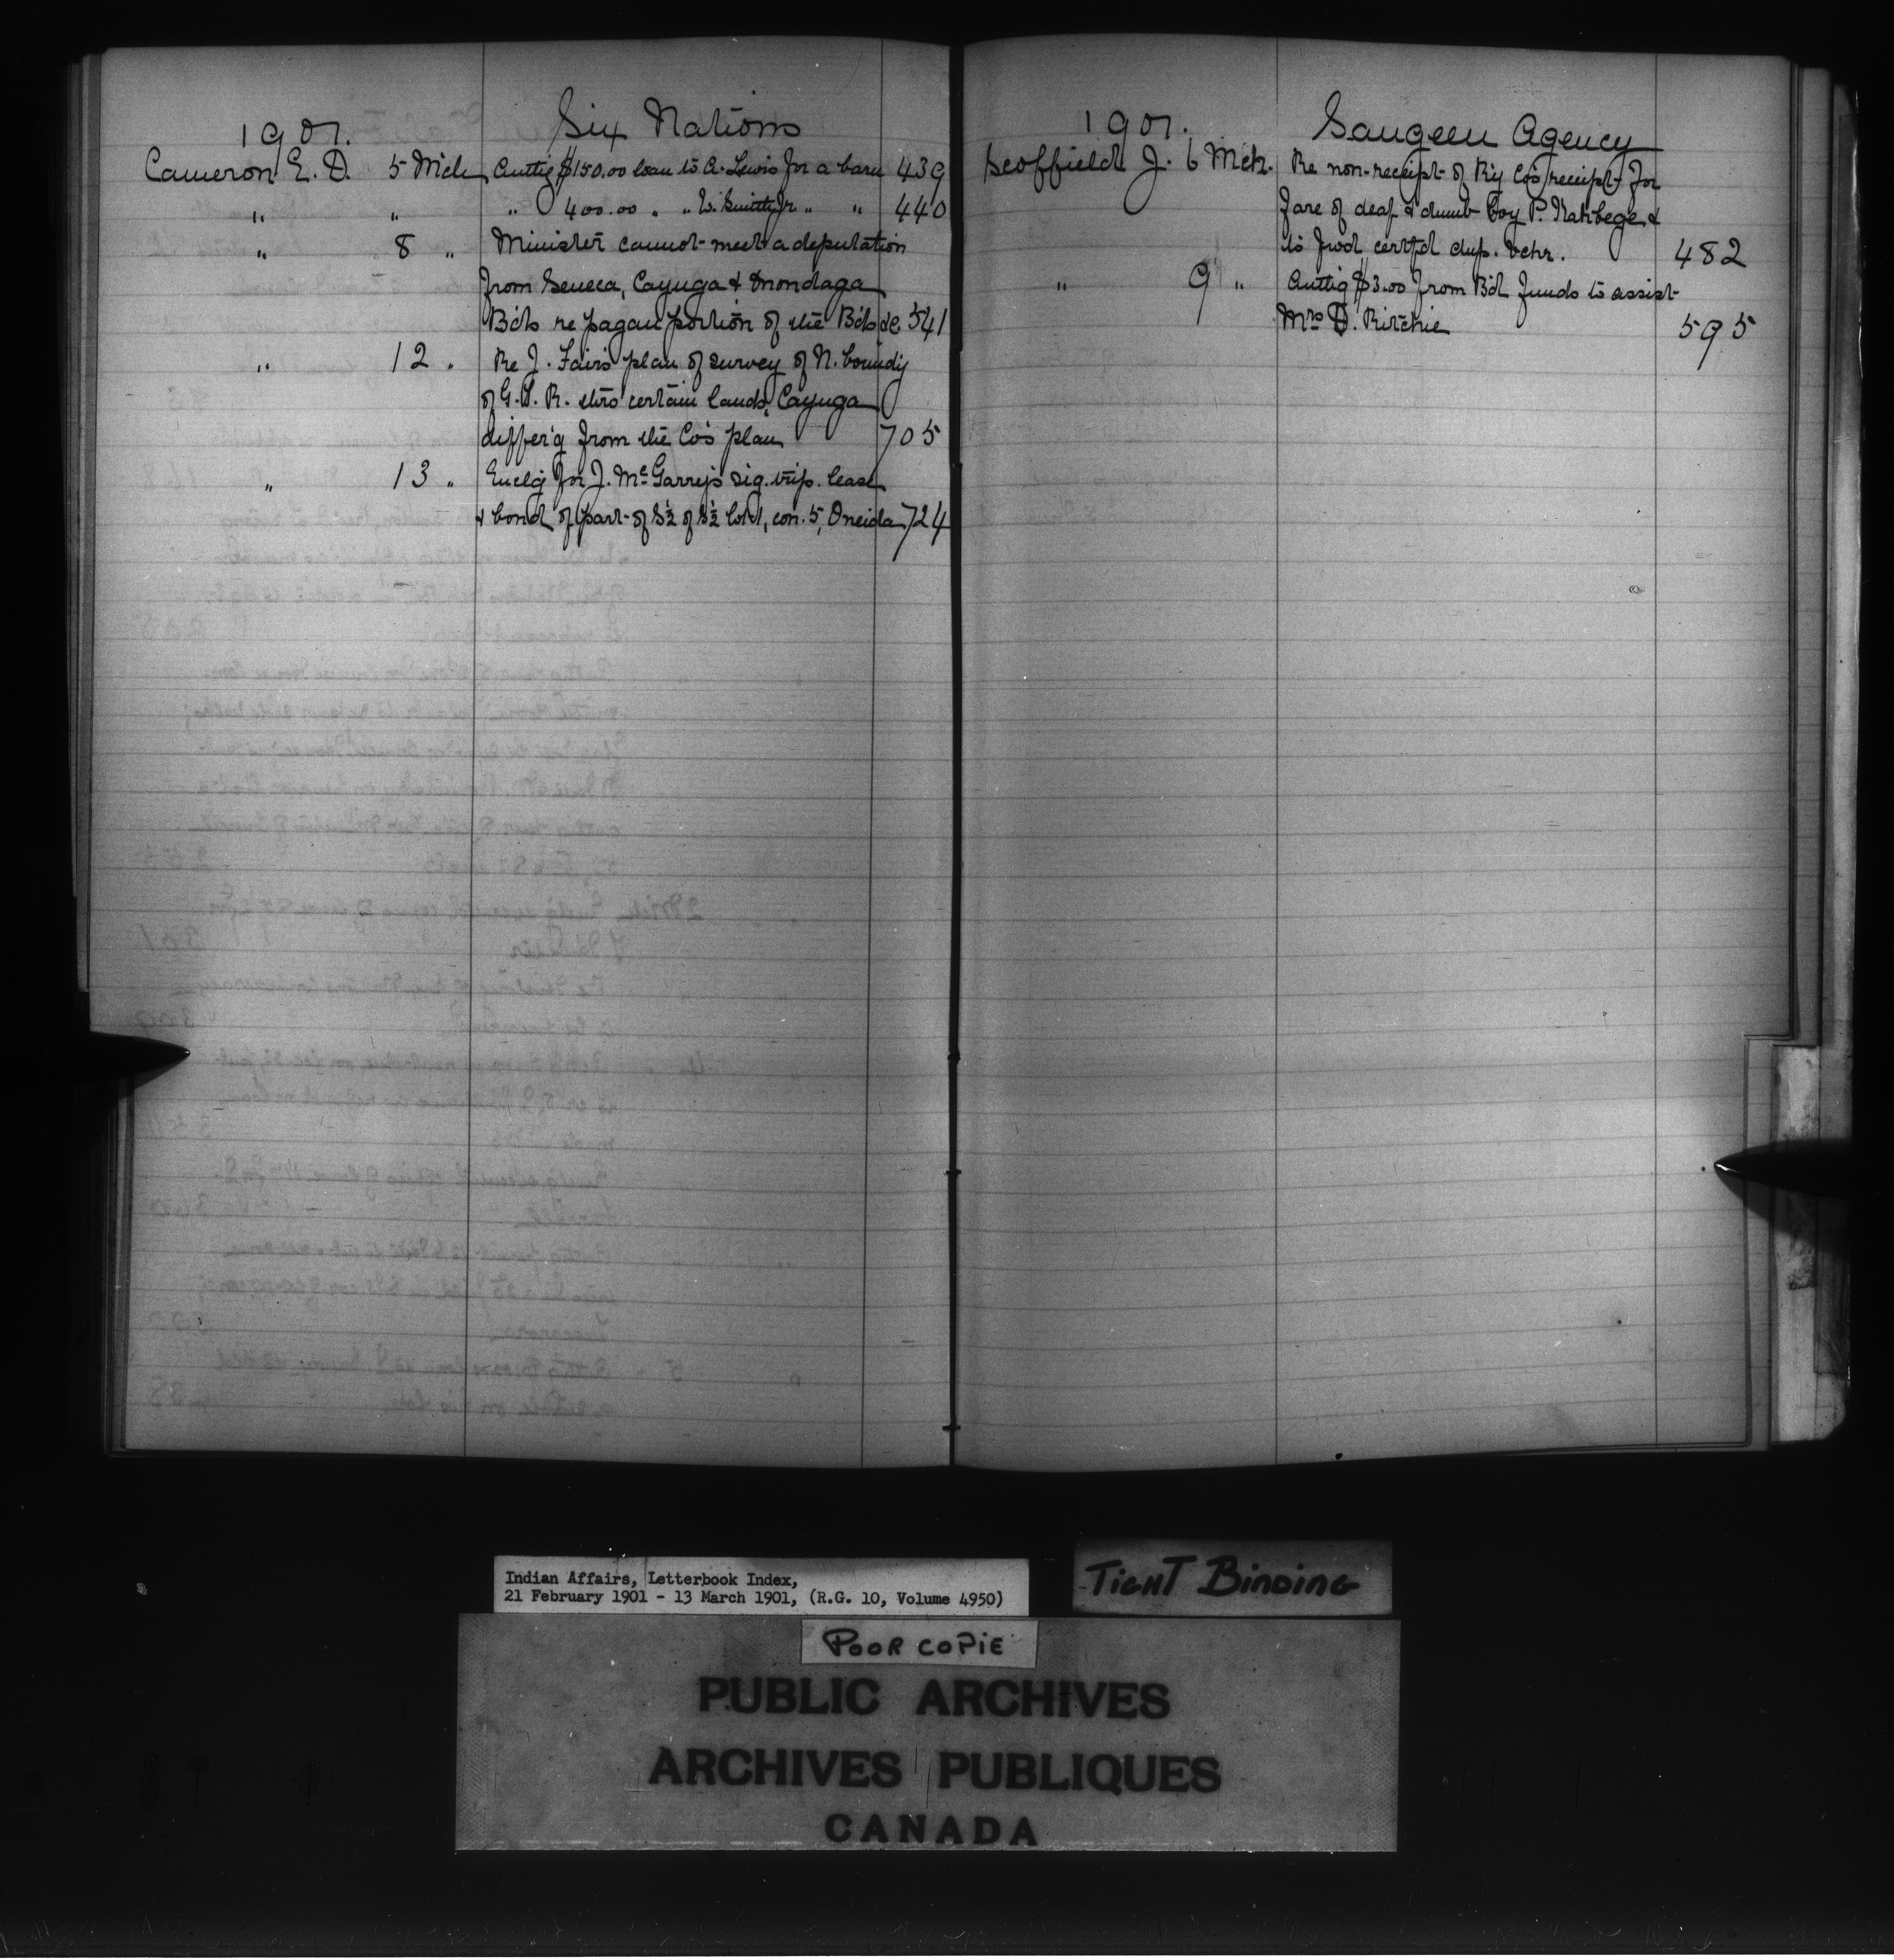 1901. Six Nations
Cameron E. D. 5 Mch Authg $150.00 loan to A. Lewis for a barn 439
" " " 400.00 " " W. Smith Jr " " 440
" 8 " Minister cannot meet a deputation
from Seneca, Cayuga & Onondaga
Bds re pagan portion of the Bds &c 541
" 12 " Re J. Fair's plan of survey of N. boundy
of G.T.R. thro certain lands, Cayuga
differ'g from the Co's plan 705
" 13 " Enclg for J. McGarry's sig. trip. lease
& bond of part of S½ of S½ lot 1, con. 5, Oneida 724
1901. Saugeen Agency
Scoffield J. 6 Mch. Re non-receipt of Ry Co's receipt for
fare of deaf & dumb boy P. &
to fwd certfd dup. vchr. 482
" 9 " Authg $3.00 from Bd funds to assist
Mrs D. Ritchie 595
Indian Affairs, Letterbook Index,
21 February 1901 - 13 March 1901, (R.G. 10, Volume 4950)
TIGHT BINDING
POOR COPIE
PUBLIC ARCHIVES
ARCHIVES PUBLIQUES
CANADA